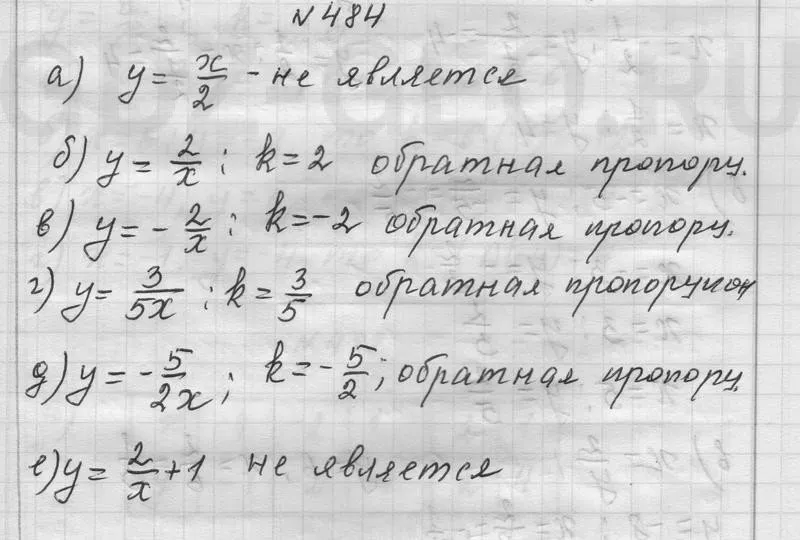 №484
а) y = x/2 - не является
б) y = 2/x ; k = 2 обратная пропорц.
в) y = - 2/x ; k = -2 обратная пропорц.
г) y = 3/5x ; k = 3/5 обратная пропорцион
д) y = - 5/2x ; k = - 5/2 ; обратная пропорц.
е) y = 2/x + 1 не является